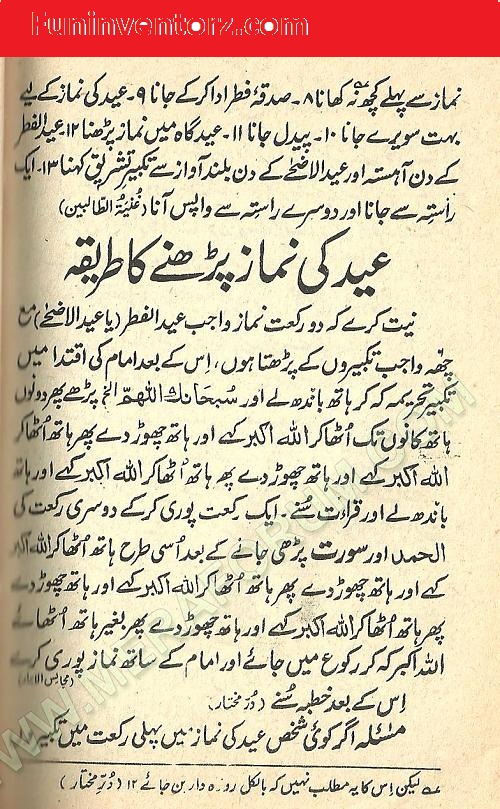 Funinventorz.com
نماز سے پہلے کچھ نہ کھانا ۸۔ صدقۂ فطر ادا کر کے جانا ۹۔ عید کی نماز کے لیے
بہت سویرے جانا ۱۰۔ پیدل جانا ۱۱۔ عید گاہ میں نماز پڑھنا ۱۲۔ عید الفطر
کے دن آہستہ اور عید الاضحےٰ کے دن بلند آواز سے تکبیر تشریق کہنا ۱۳۔ ایک
راستہ سے جانا اور دوسرے راستہ سے واپس آنا (غُنیۃُ الطّالبین)
عید کی نماز پڑھنے کا طریقہ
نیت کرے کہ دو رکعت نماز واجب عید الفطر (یا عید الاضحےٰ) مع
چھ واجب تکبیروں کے پڑھتا ہوں، اِس کے بعد امام کی اقتدا میں
تکبیر تحریمہ کہہ کر ہاتھ باندھ لے اور سُبحَانَكَ اللّٰهُمَّ الخ پڑھے پھر دونوں
ہاتھ کانوں تک اُٹھا کر اللہ اکبر کہے اور ہاتھ چھوڑ دے پھر ہاتھ اُٹھا کر
اللہ اکبر کہے اور ہاتھ چھوڑ دے پھر ہاتھ اُٹھا کر اللہ اکبر کہے اور ہاتھ
باندھ لے اور قراءت سُنے۔ ایک رکعت پوری کر کے دوسری رکعت کی
الحمد اور سورت پڑھی جانے کے بعد اُسی طرح ہاتھ اُٹھا کر اللہ اکبر
کہے اور ہاتھ چھوڑ دے پھر ہاتھ اُٹھا کر اللہ اکبر کہے اور ہاتھ چھوڑ دے
پھر ہاتھ اُٹھا کر اللہ اکبر کہے اور ہاتھ چھوڑ دے پھر بغیر ہاتھ اُٹھائے
اللہ اکبر کہہ کر رکوع میں جائے اور امام کے ساتھ نماز پوری کرے
اِس کے بعد خطبہ سُنے (دُرِّ مختار) (مجالس الابرار)
مسئلہ اگر کوئی شخص عید کی نماز میں پہلی رکعت میں تکبیر
لیکن اِس کا یہ مطلب نہیں کہ بالکل روزہ دار بن جائے ۱۲ (دُرِّ مختار)